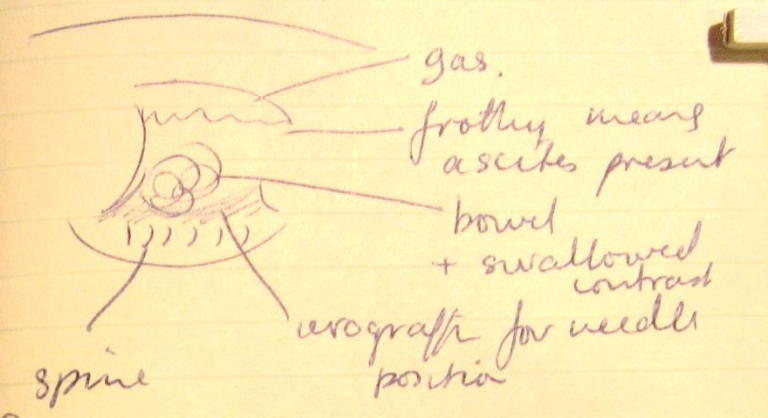 gas.
frothy means
ascites present
bowel
+ swallowed
contrast
urograffin for needle
position
spine